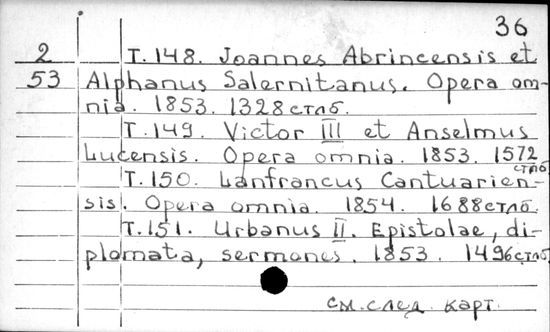 36
2 Т. 148. Joannes Abrincensis et
53 Alphanus Salernitanus. Opera om-
nia. 1853. 1328 стлб.
Т. 149. Victor III et Anselmus
Lucensis. Opera omnia. 1853. 1572 стлб.
Т. 150. Lanfrancus Cantuarien-
sis. Opera omnia. 1854. 1688 стлб.
Т. 151. Urbanus II. Epistolae, di-
plomata, sermones. 1853. 1496 стлб.
см. след. карт.